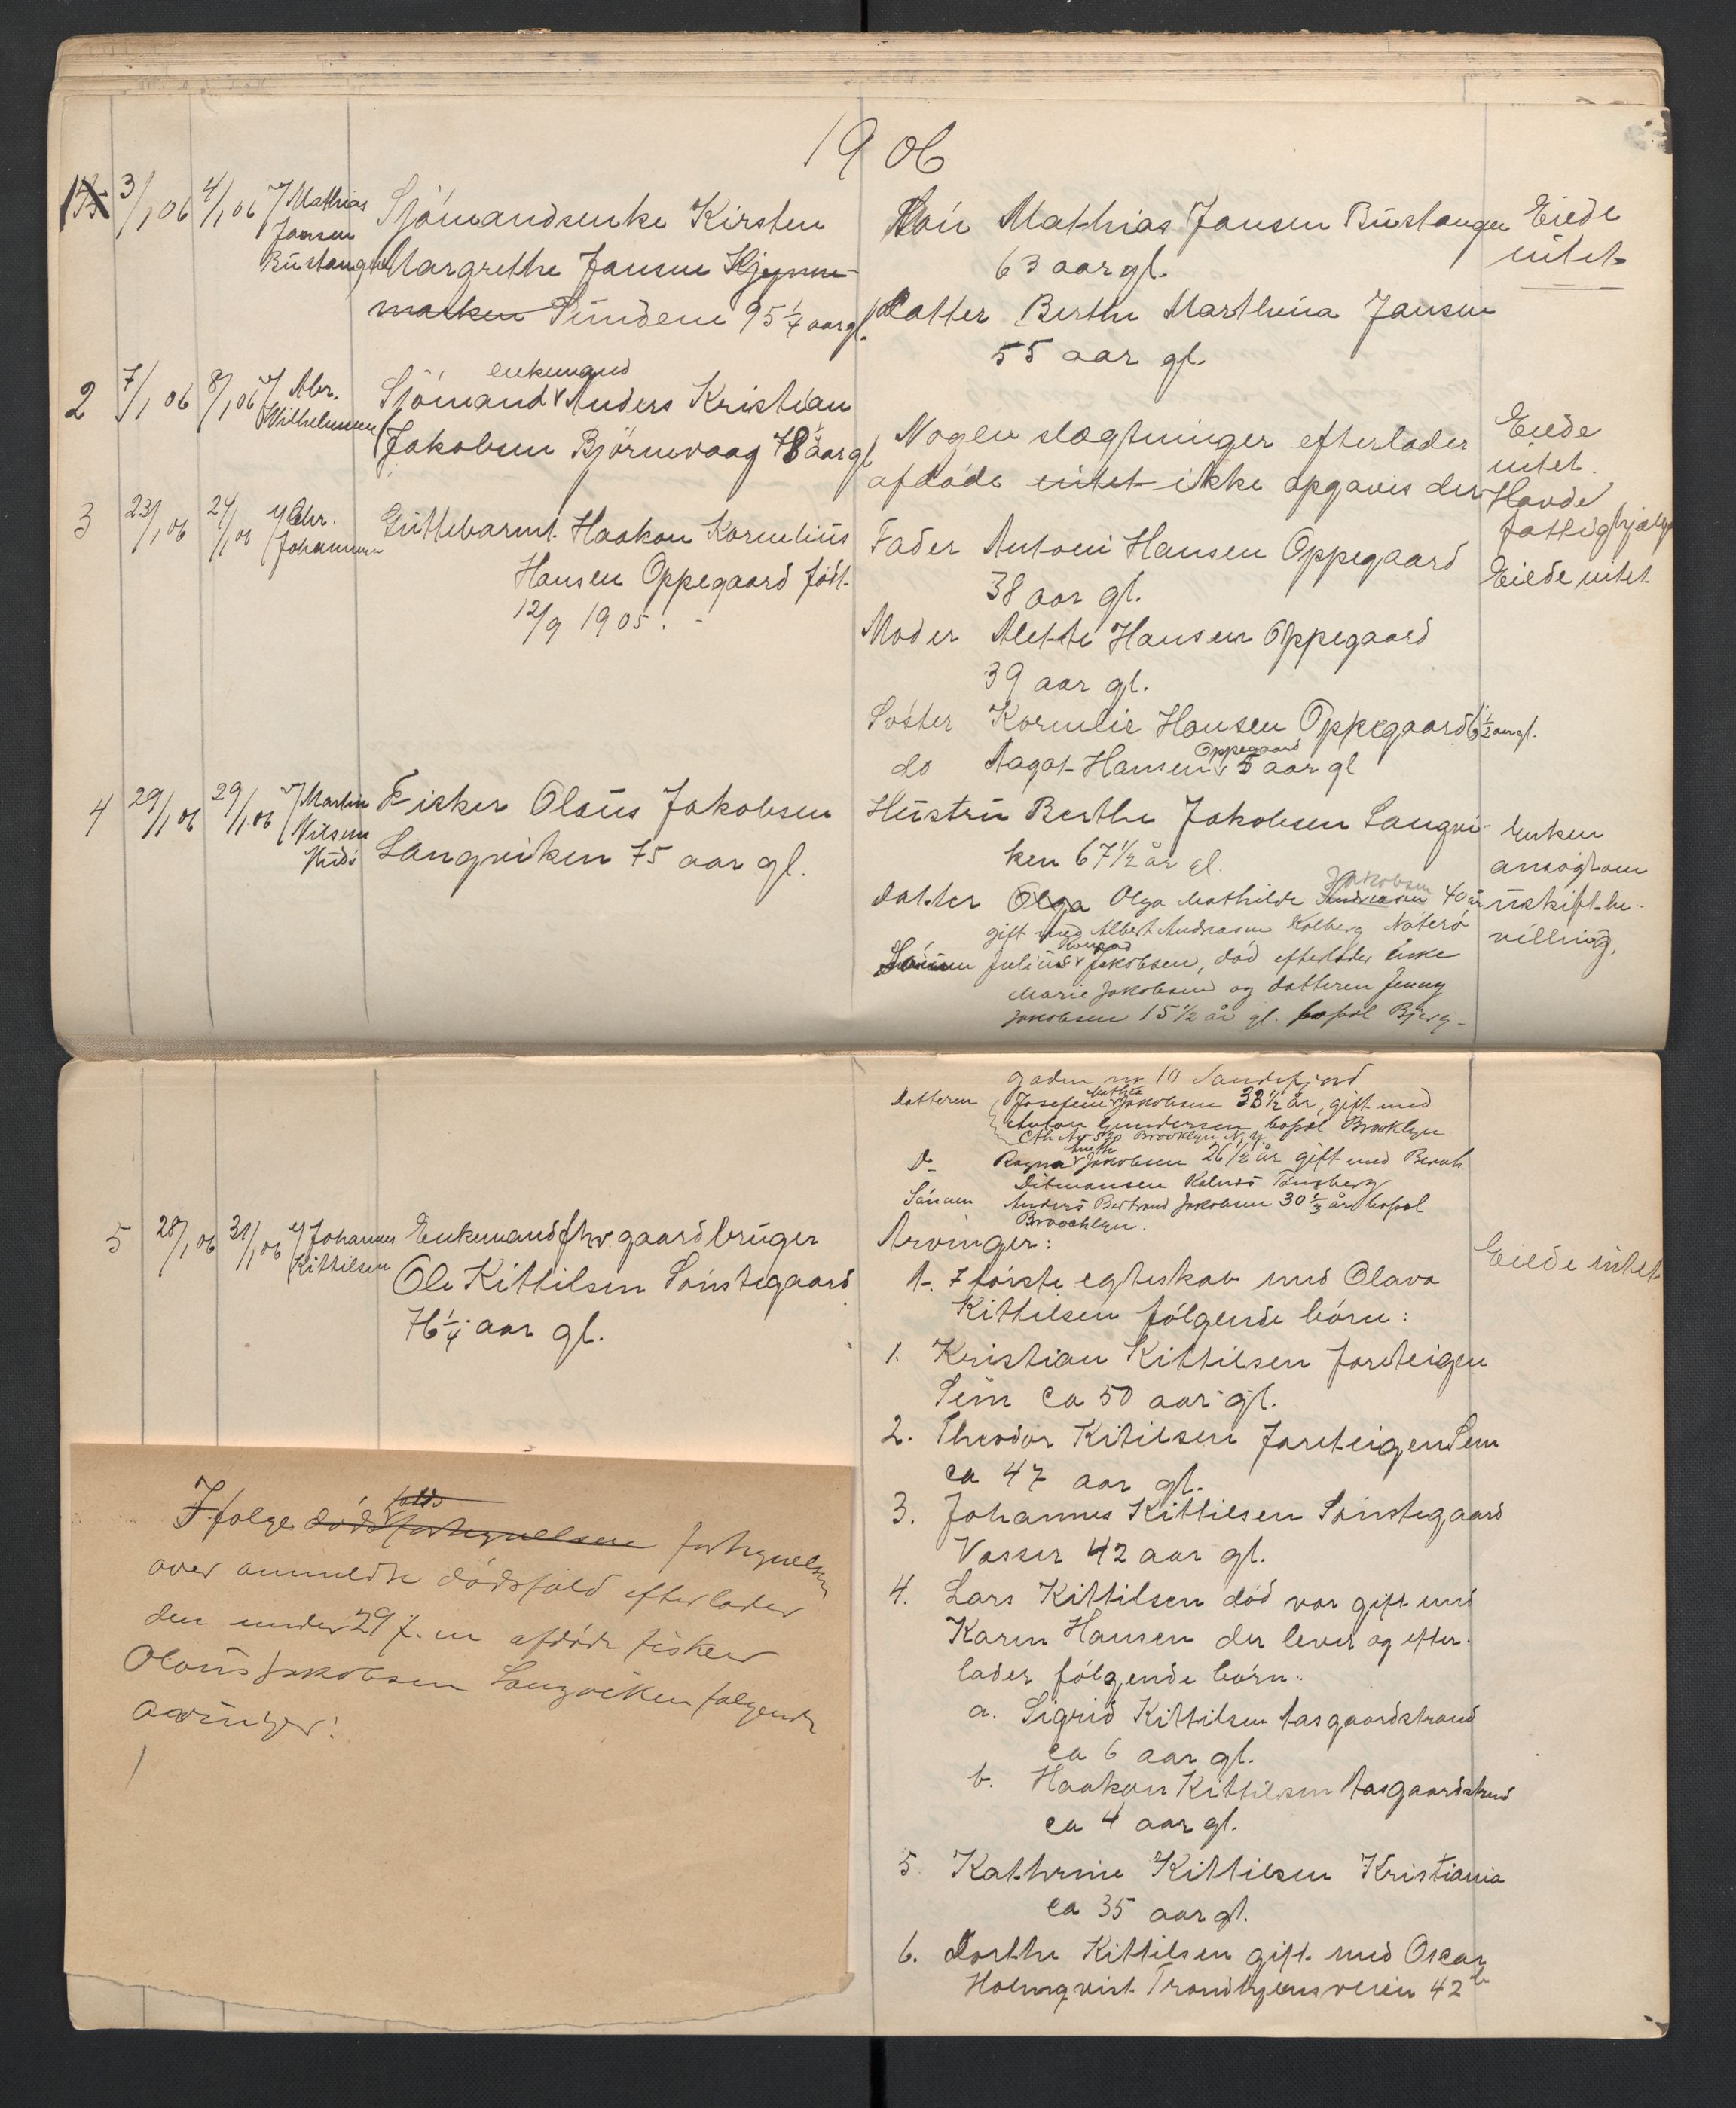 1906
1 3/1 06 4/1 06 v/ Mathias Jansen Bustangen
Sjómandsenke Kirsten
Margrethe Jansen Kjynne-
marken Sundene 95 1/4 aar gl.
Són Mathias Jansen Bustangen
63 aar gl.
Datter Berthe Marthina Jansen
55 aar gl.
Eiede
intet
2 7/1 06 8/1 06 v/ Abr. Wilhelmsen
enkemand
Sjómand Anders Kristian
Jakobsen Bjórnevaag 78 aar gl
Nogen slægtninger efterlader
afdóde intet ikke opgaves der
Eiede
intet.
Havde
fattighjælp
3 23/1 06 24/1 06 v/ Chr. Johannesen
Guttebarnt Haakon Kornelius
Hansen Oppegaard fódt
12/9 1905.
Fader Antoni Hansen Oppegaard
38 aar gl.
Moder Alette Hansen Oppegaard
39 aar gl.
Sóster Kornelie Hansen Oppegaard 6 1/2 aar gl.
Oppegaard
do Aagot Hansen 5 aar gl
Eiede intet
4 29/1 06 29/1 06 v/ Martin Nilsen
Fisker Olaus Jakobsen
Langviken 75 aar gl.
Hustru Berthe Jakobsen Langvi-
ken 67 1/2 år gl.
Jakobsen
datter Olga Olga Mathilde Andreasen 40 år
gift med Albert Andreasen Kolberg Nóteró
Sónnen Julius Jakobsen, dód efterlader enke
Marie Jakobsen og datteren Jenny
Jakobsen 15 1/2 år gl. bopæl Bjerg-
Enken
ansógt om
uskift be-
villing.
gaden nr 10 Sandefjord
Mathea
datteren Josefine Jakobsen 33 1/2 år, gift med
Anton Gundersen, bopæl Brooklyn
Brooklyn N.Y.
Do Ragna Jakobsen 26 1/2 år gift med Bernh.
Ditmansen Kalnes Tónsberg
Sónnen Anders Bertrand Jakobsen 30 1/3 år bopæl
Broocklyn.
5 28/1 06 31/1 06 v/ Johannes Kittilsen
Enkemand fhv. gaardbruger
Ole Kittilsen Sónstegaard
76 1/4 aar gl.
Arvinger:
A. I fórste egteskab med Olava
Kittilsen fólgende bórn:
Eiede intet
1. Kristian Kittilsen Jareteigen
Sem ca 50 aar gl.
2. Theodor Kitilsen Jareteigen Sem
ca 47 aar gl.
3. Johannes Kittilsen Sónstegaard
Vasser 42 aar gl.
4. Lars Kittilsen dód var gift med
Karen Hansen der lever og efter-
lader fólgende bórn:
a. Sigrid Kittilsen Aasgaardstrand
ca 6 aar gl.
b. Haakon Kittilsen Aasgaardstrand
ca 4 aar gl.
5 Kathrine Kittilsen Kristiania
ca 35 aar gl.
6. Dorthe Kittilsen gift med Oscar
Holmqvist Trondhjemsveien 42 b
falds
I fólge dóds fortegnelsen fortegnelsen
over anmeldte dódsfald efterlader
den under 29 f. m afdóde fisker
Olaus Jakobsen Langviken fólgende
arvinger:
1